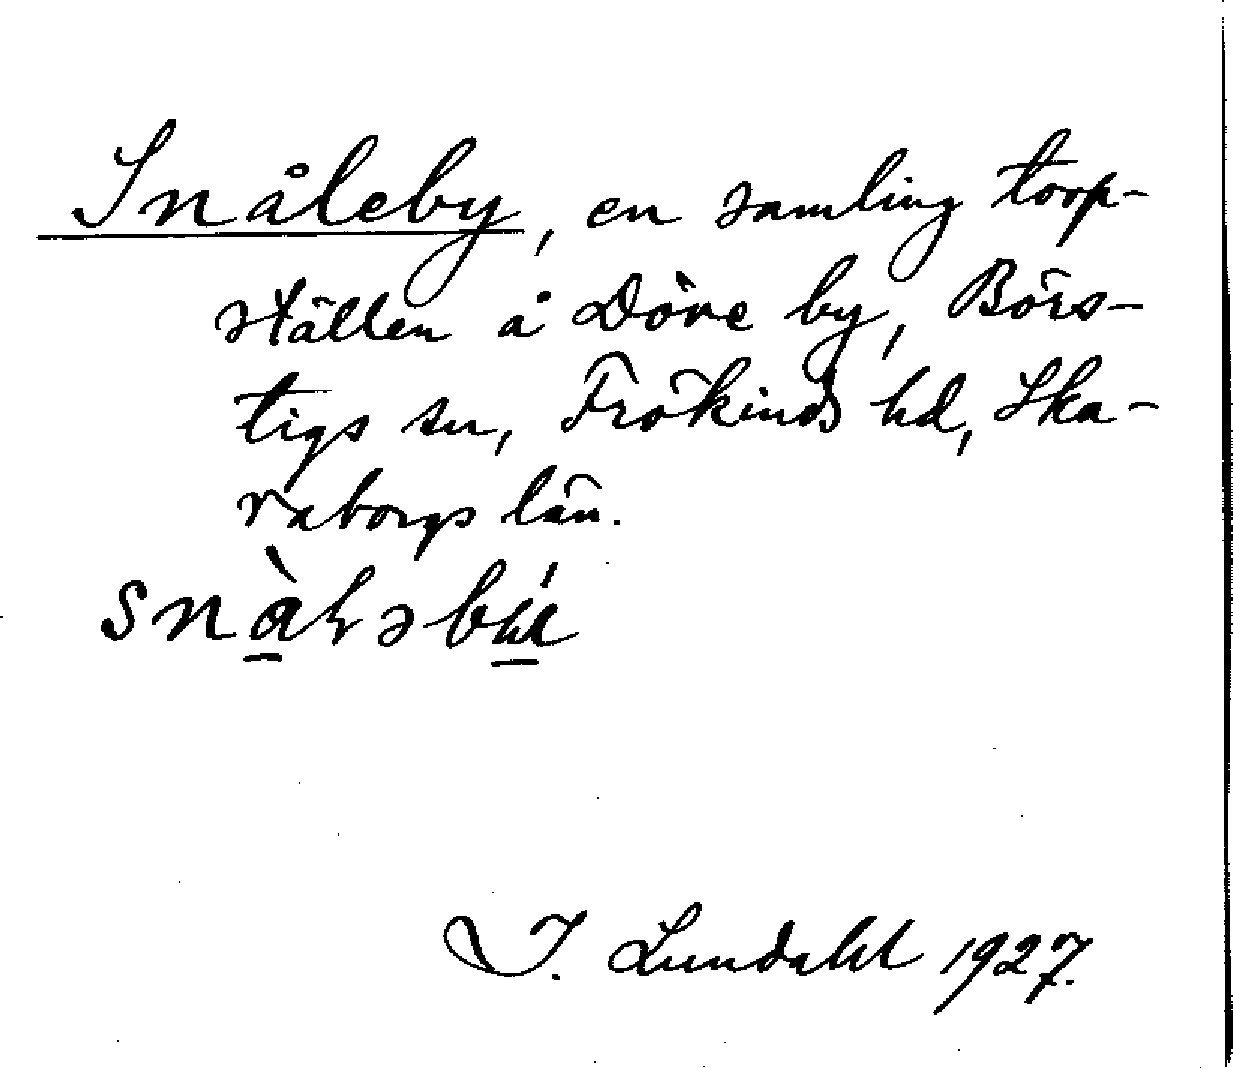 Snåleby, en samling torp-
ställen å Döve by, Börs-
tigs sn, Frökinds hd, Ska-
raborgs län.
I. Lundahl 1927.